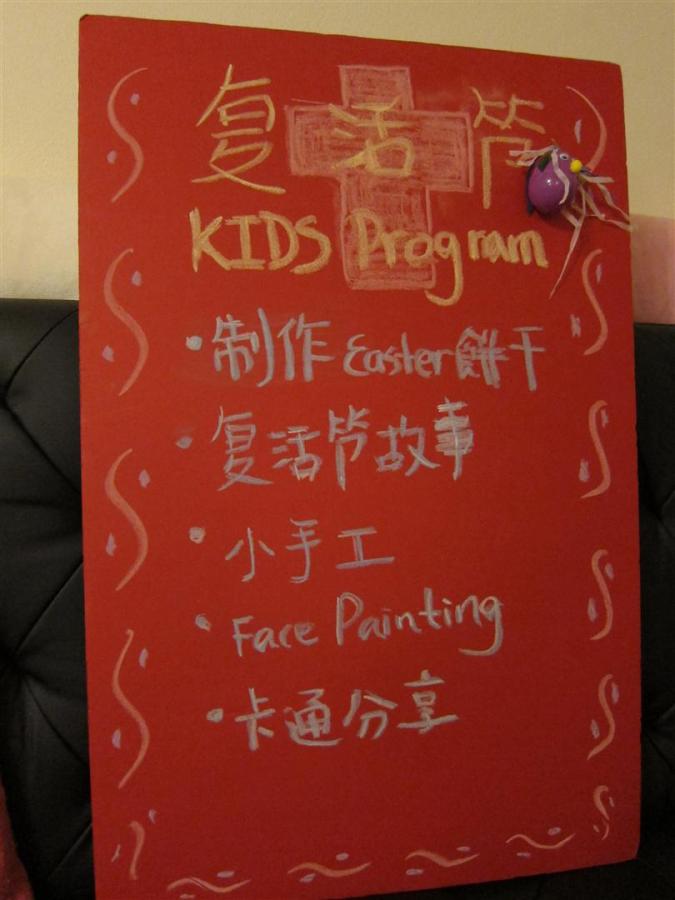 复活节
KIDS Program
·制作 Easter 餅干
·复活节故事
·小手工
·Face Painting
·卡通分享